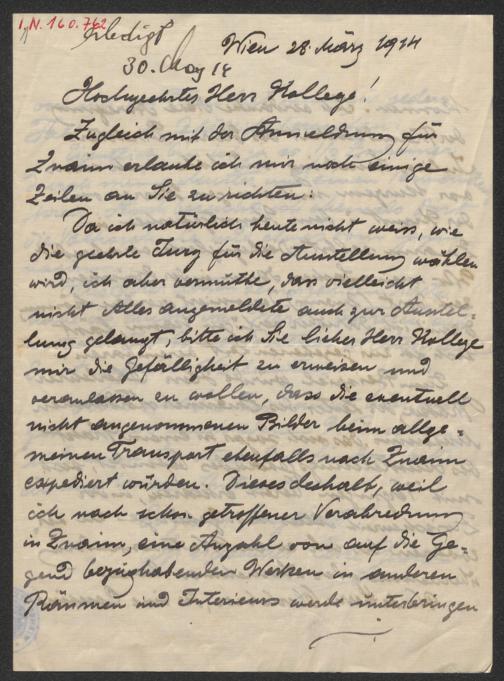 I.N. 160.762
Erledigt
30. May 14
Wien 28. März 1914
Hochgeehrtes Herr Kollege!
Zugleich mit der Anmeldung für
Znaim erlaube ich mir noch einige
Zeilen an Sie zu richten:
Da ich natürlich heute nicht weiss, wie
die geehrte Jury für die Ausstellung wählen
wird, ich aber vermuthe, dass vielleicht
nicht Alles angemeldete auch zur Ausstel-
lung gelangt, bitte ich Sie lieber Herr Kollege
mir die Gefälligkeit zu erweisen und
veranlassen zu wollen, dass die eventuell
nicht angenommenen Bilder beim allge-
meinen Transport ebenfalls nach Znaim
expediert würden. Dieses deshalb, weil
ich nach schon getroffener Verabredung
in Znaim, eine Anzahl von auf die Ge-
gend bezughabenden Werken in anderen
Räumen und Interieurs werde unterbringen